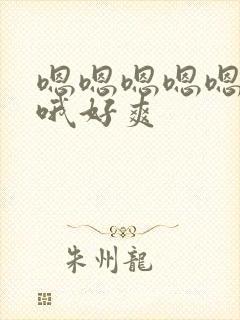 嗯嗯嗯嗯嗯
哦好爽
朱州龍